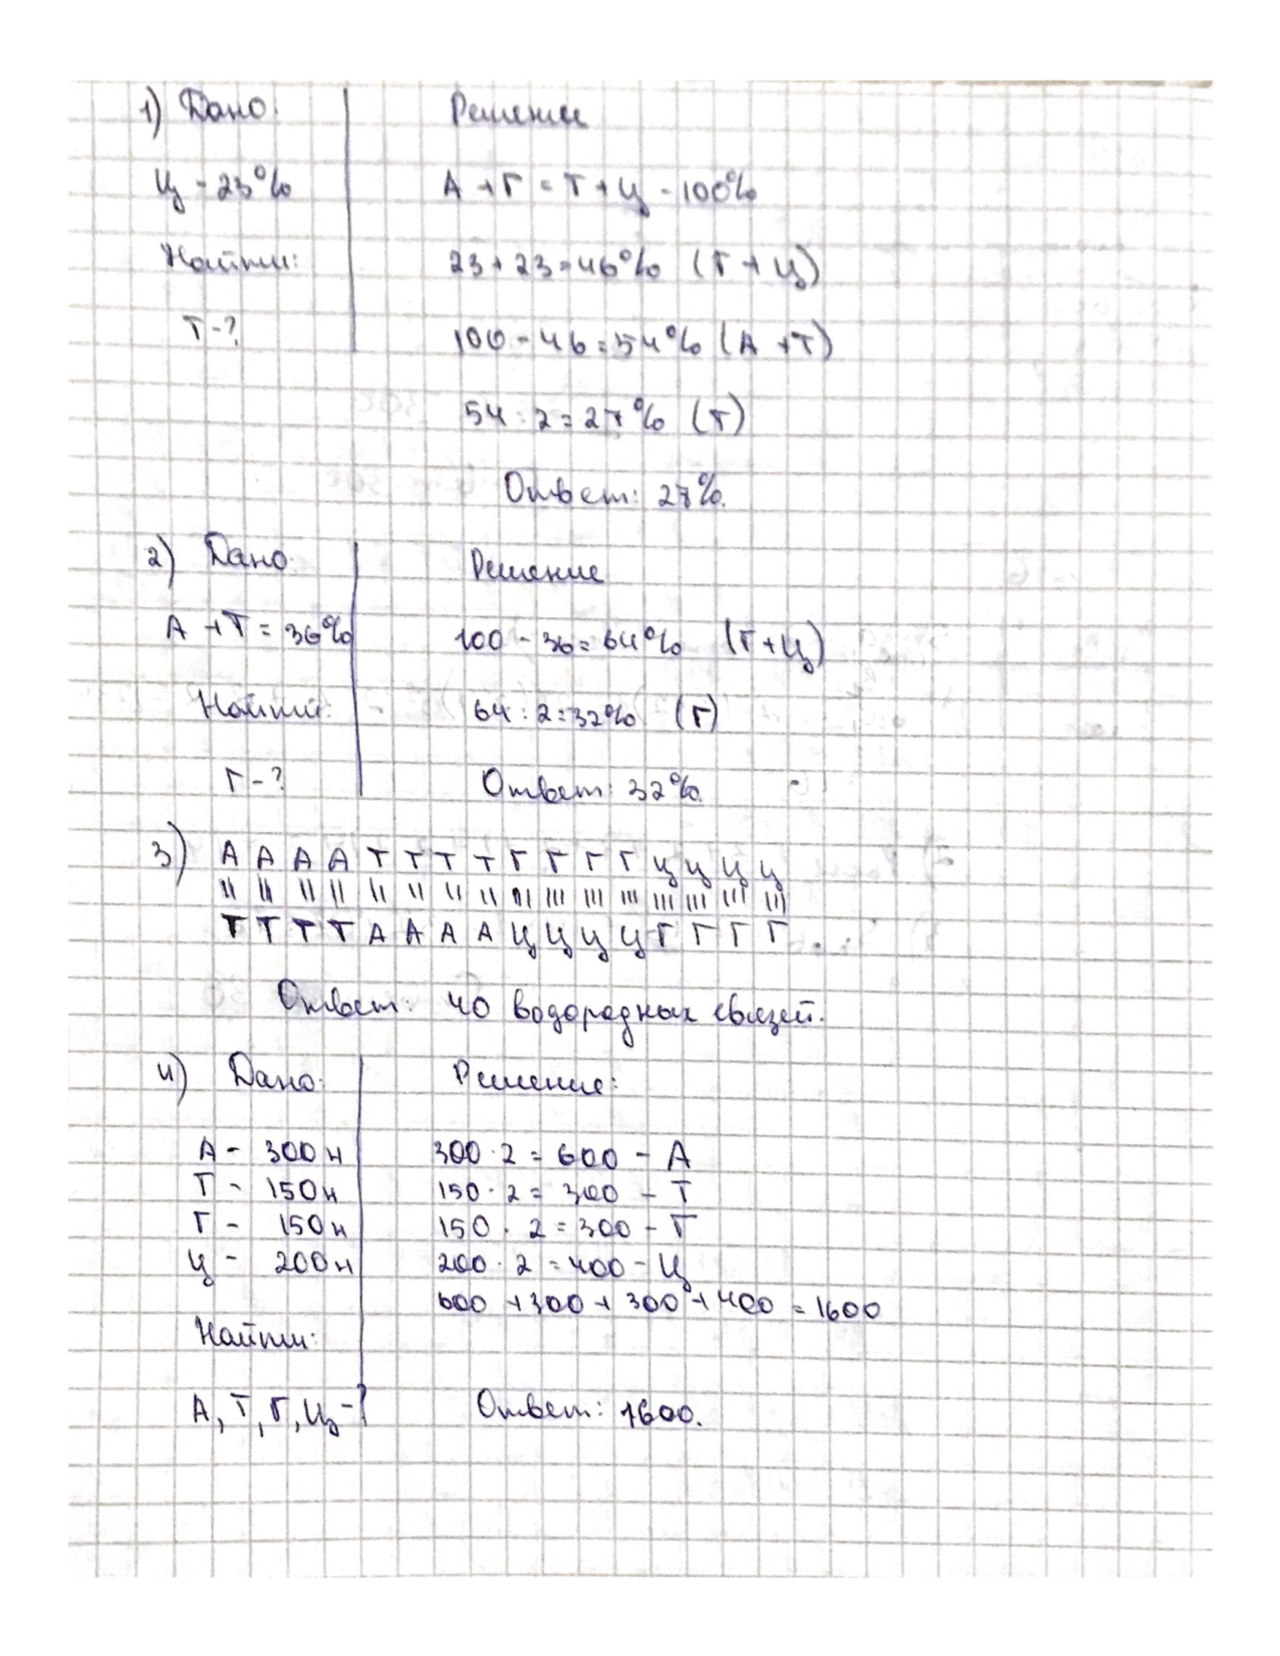 1) Дано: Решение
Ц - 23% А + Г = Т + Ц - 100%
Найти: 23 + 23 = 46% (Г + Ц)
Т - ? 100 - 46 = 54% (А + Т)
54 : 2 = 27% (Т)
Ответ: 27%.
2) Дано: Решение
А + Т = 36% 100 - 36 = 64% (Г + Ц)
Найти: 64 : 2 = 32% (Г)
Г - ? Ответ: 32%.
3) А А А А Т Т Т Т Г Г Г Г Ц Ц Ц Ц
|| || || || || || || || ||| ||| ||| ||| ||| ||| ||| |||
Т Т Т Т А А А А Ц Ц Ц Ц Г Г Г Г.
Ответ: 40 водородных связей.
4) Дано: Решение:
А - 300 н 300 · 2 = 600 - А
Т - 150 н 150 · 2 = 300 - Т
Г - 150 н 150 · 2 = 300 - Г
Ц - 200 н 200 · 2 = 400 - Ц
600 + 300 + 300 + 400 = 1600
Найти:
А, Т, Г, Ц - ? Ответ: 1600.